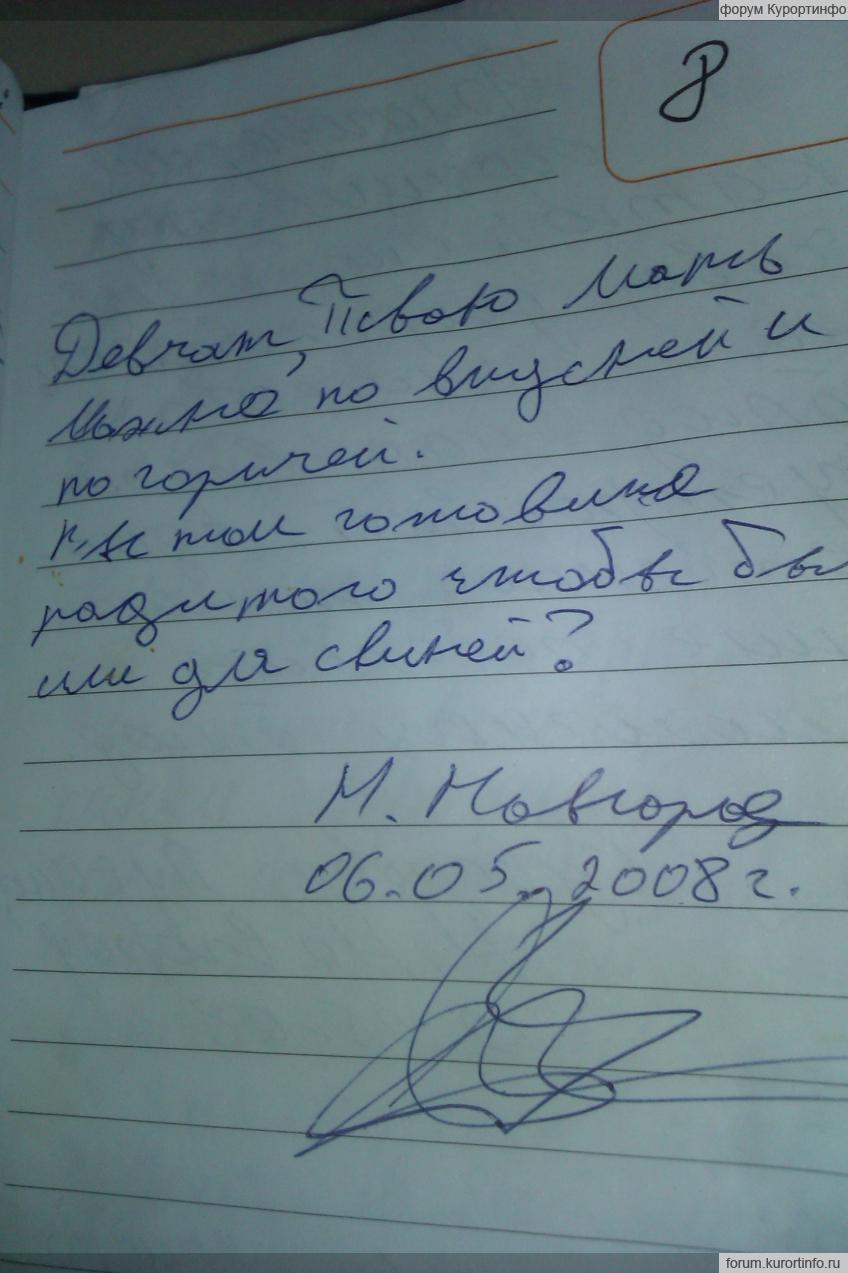 форум Курортинфо
8
Девчат, твою мать
можно по вкусней и
по горячей.
готовили
ради того чтобы бы
или для свиней?
Н. Новгород
06.05.2008г.
forum.kurortinfo.ru